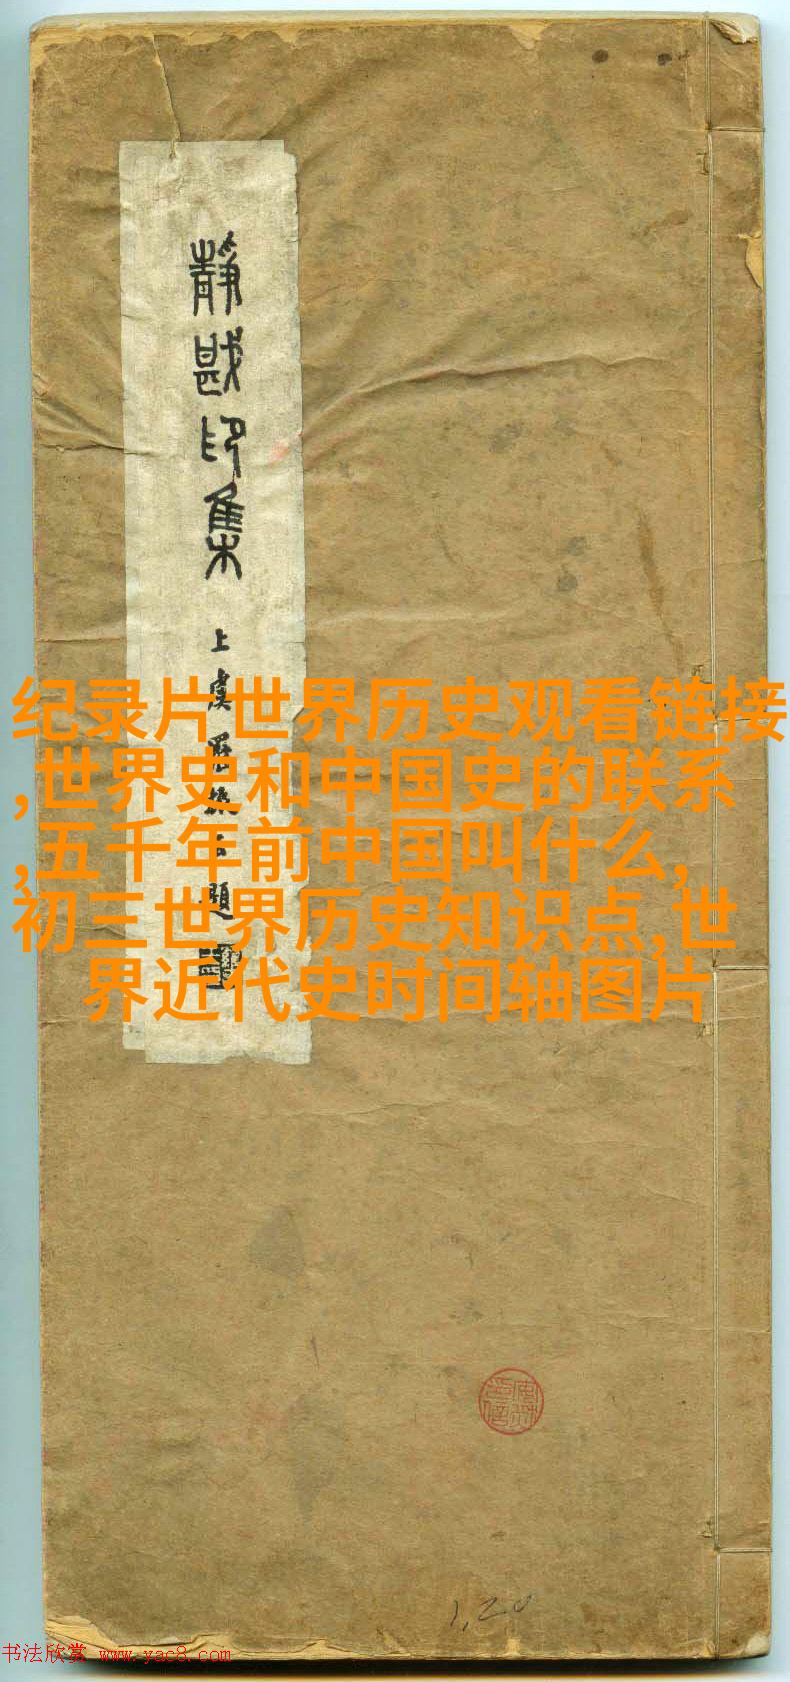 静戡印集
上虞
題
纪录片世界历史观看链接
,世界史和中国史的联系
,五千年前中国叫什么,
初三世界历史知识点,世
界近代史时间轴图片
1,20
书法欣赏 www.yac8.com